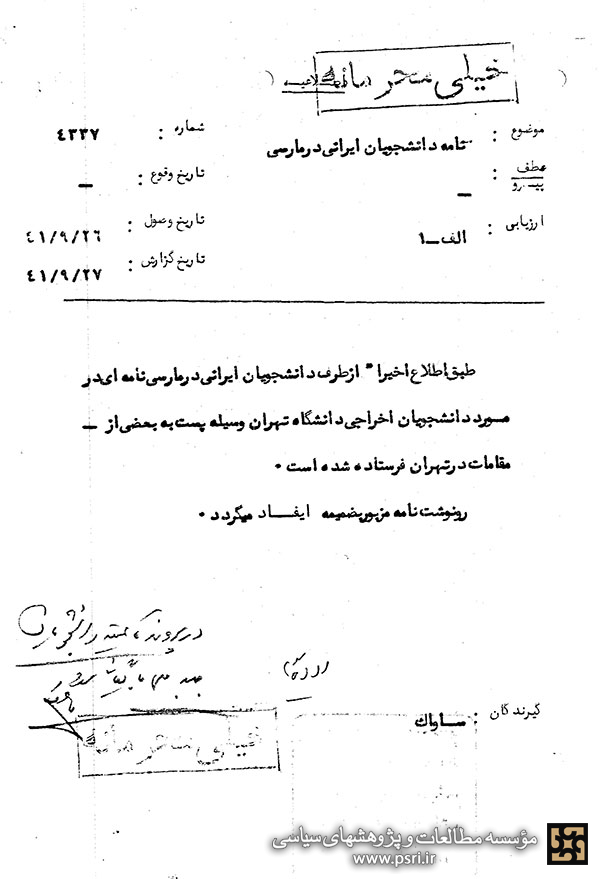 خیلی محرمانه
موضوع : نامه دانشجویان ایرانی در مارسی
شماره : ٤٣٣٧
عطف
پیــرو : ــ
تاریخ وقوع : ــ
ارزیابی : الف ــ ۱
تاریخ وصول : ٤١/٩/٢٦
تاریخ گزارش : ٤١/٩/٢٧
طبق اطلاع اخیرا" از طرف دانشجویان ایرانی در مارسی نامه ای در
مـورد دانشجویان اخراجی دانشگاه تهران وسیله پست به بعضی از ــ
مقامات در تهران فرستاده شده است ۰
رونوشت نامه مزبور بضمیمه ایفــاد میگردد ۰
در پرونده
گیرندگان : ســاواك
خیلی محرمانه
مؤسسه مطالعات و پژوهشهای سیاسی
www.psri.ir